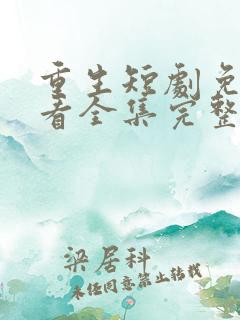 重生短劇免
看全集完整
梁居科
未经同意禁止转载